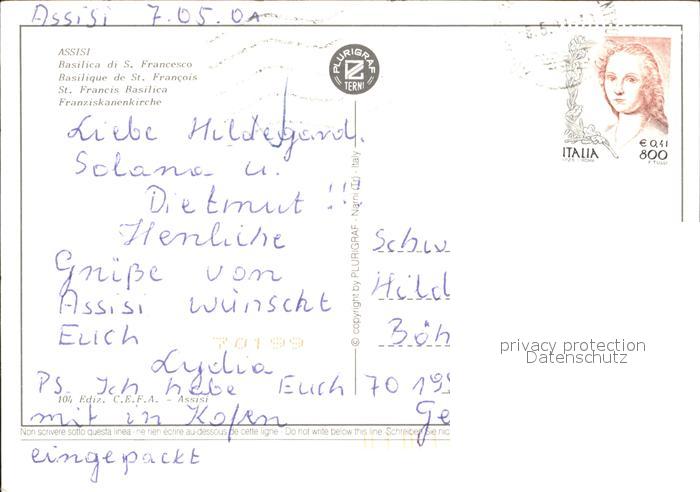 Assisi 7.05.01
ASSISI
Basilica di S. Francesco
Basilique de St. François
St. Francis Basilica
Franziskanenkirche
PLURIGRAF
TERNI
ITALIA
€ 0,41
800
Liebe Hildegard,
Solana u.
Dietmut !!!
Herzliche
Grüße von
Assisi wünscht
Euch
Lydia
PS. Ich habe Euch
mit in Kofen
eingepackt
Schw
Hild
Böh
70 199
Ge
70199
© copyright by PLURIGRAF - Narni (Tr) - Italy
104 Ediz. C.E.F.A. - Assisi
Non scrivere sotto questa linea - ne rien écrire au-dessous de cette ligne - Do not write below this line. Schreiben Sie nic
privacy protection
Datenschutz